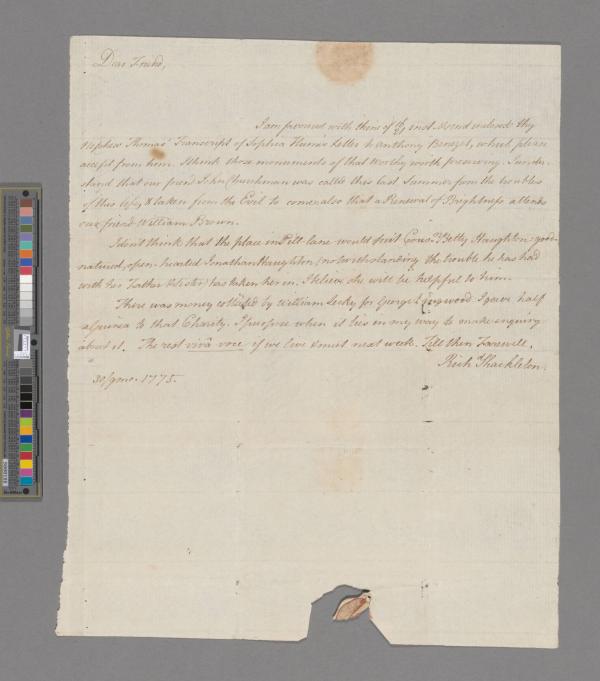 Dear Friend,
I am favoured with thine of 21st inst. & send inclosed thy
Nephew Thomas's Transcript of Sophia Hume's Letter to Anthony Benezet, which please
accept from him. I think those monuments of that Worthy worth preserving. I under-
stand that our friend John Churchman was called this last Summer from the troubles
of this life, & taken from the Evil to come: also that a Renewal of Brightness attends
our friend William Brown.
I don't think that the place in Pill-lane would suit Cous.n Betty Haughton: good-
natured, open-hearted Jonathan Haughton (notwithstanding the trouble he has had
with her Father & Sister) has taken her in. I believe she will be helpful to him.
There was money collected by William Lecky for George I gave half
a Guinea to that Charity. I purpose when it lies in my way to make enquiry
about it. The rest viva voce if we live & meet next week. Till then Farewell.
Rich.d Shackleton.
30/9mo. 1775.